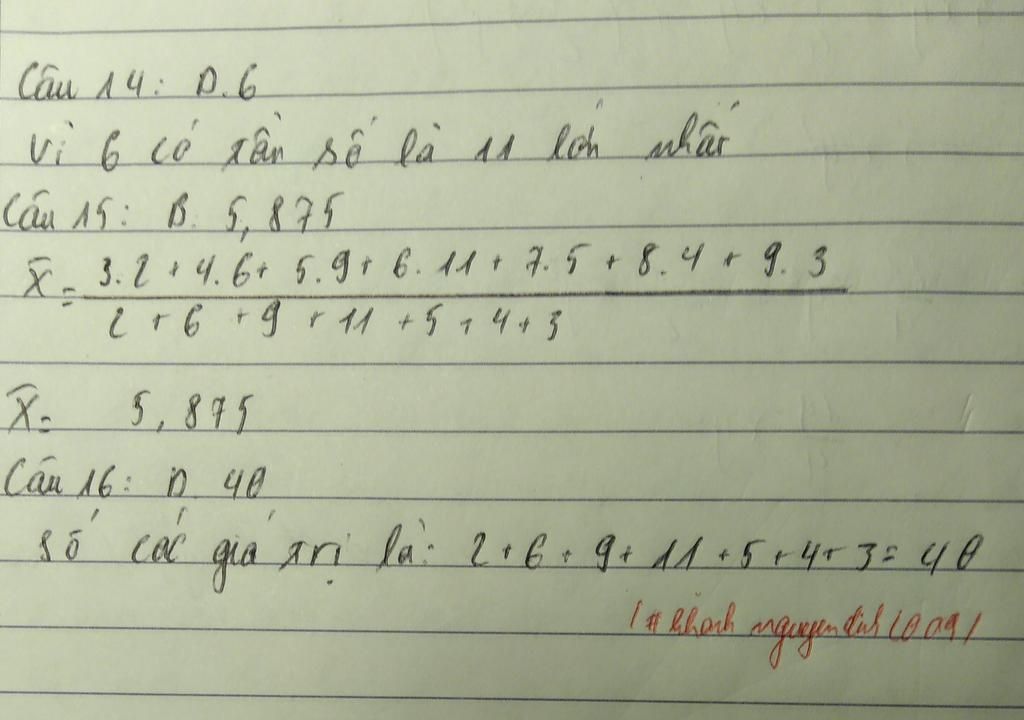 Câu 14: D.6
Vì 6 có tần số là 11 lớn nhất
Câu 15: B. 5,875
X̄ = 3.2 + 4.6 + 5.9 + 6.11 + 7.5 + 8.4 + 9.3
2 + 6 + 9 + 11 + 5 + 4 + 3
X̄ = 5,875
Câu 16: D 40
Số các giá trị là: 2 + 6 + 9 + 11 + 5 + 4 + 3 = 40